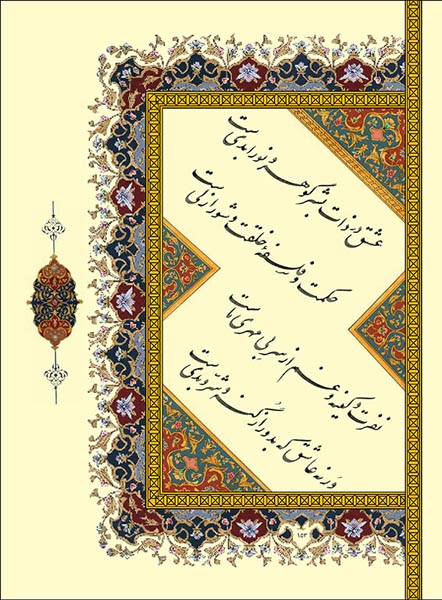 عشق در ذات بشر گوهر و نور ابدی ست
حکمت و فلسفه خلقت و شور ازلی ست
نفرت و کینه و غم از سر بی مهری ماست
ورنه عاشق که به دور از گنه و شر و بدی ست
۱۵۳